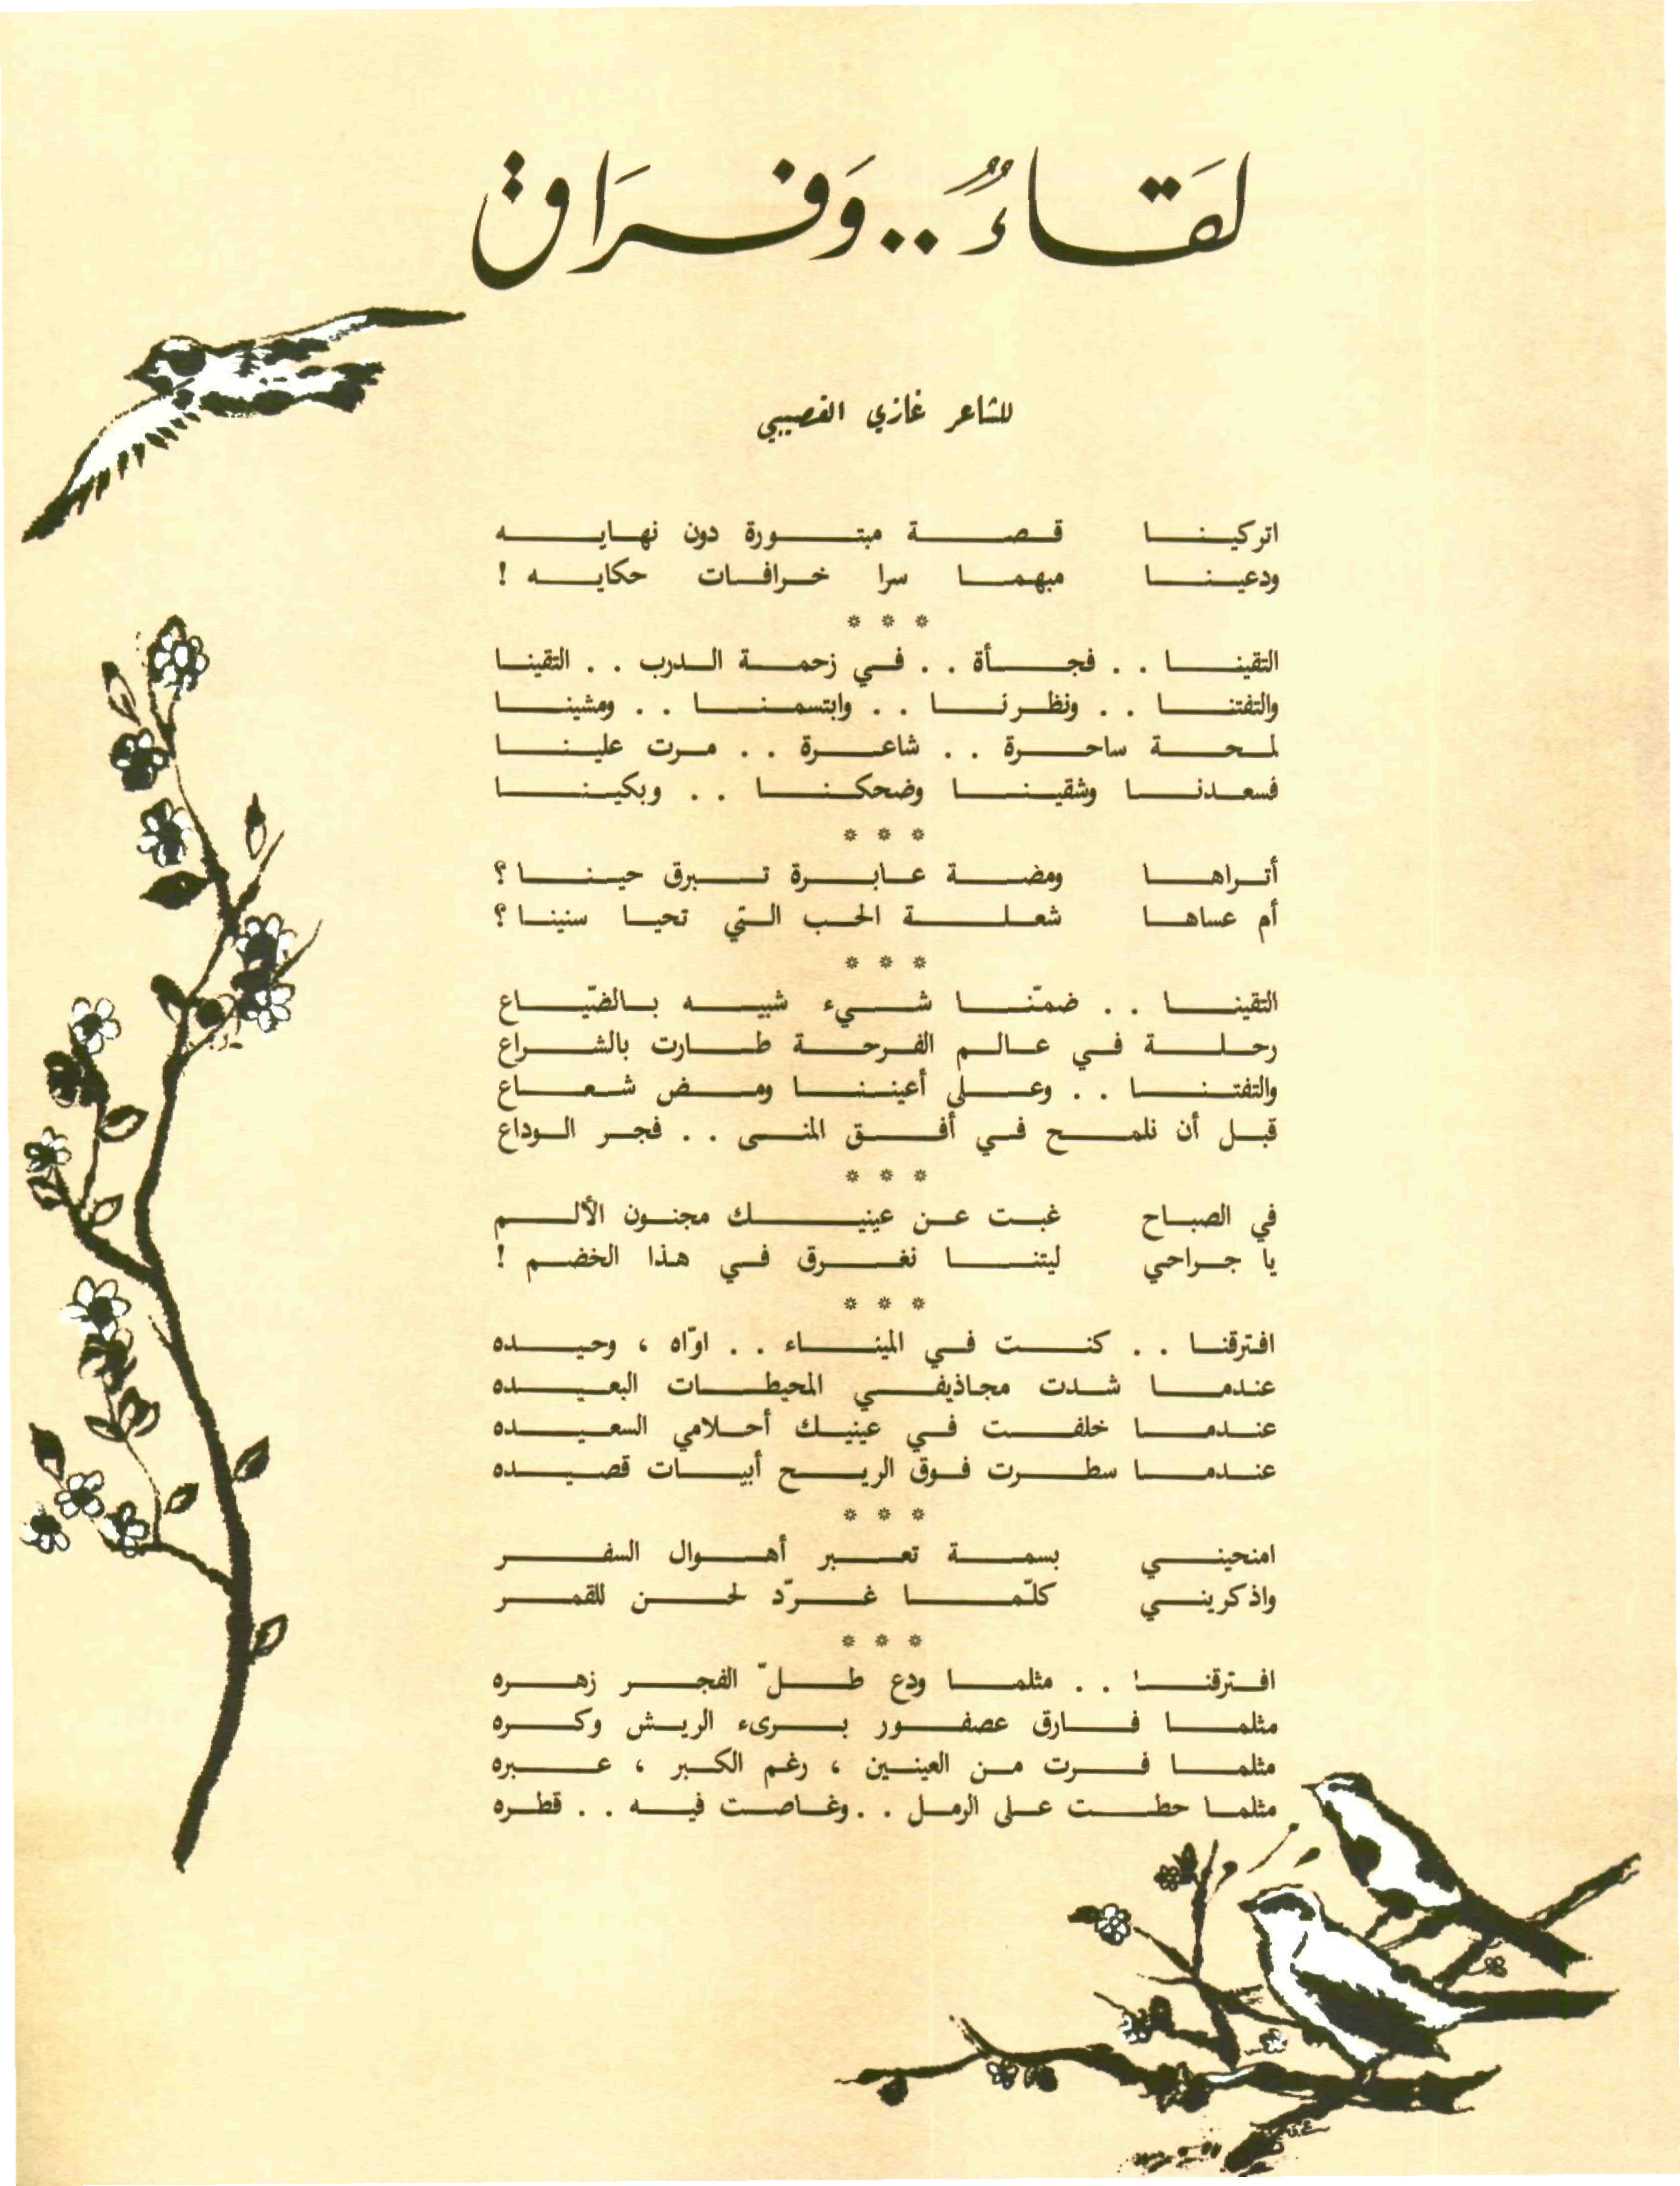 لقَاءٌ .. وَفِرَاق
للشاعر غازي القصيبي
اتركينا قصة مبتورة دون نهايه
ودعينا مبهما سرا خرافات حكايه !
* * *
التقينا . . فجأة . . في زحمة الدرب . . التقينا
والتفتنا . . ونظرنا . . وابتسمنا . . ومشينا
لمحة ساحرة . . شاعرة . . مرت علينا
فسعدنا وشقينا وضحكنا . . وبكينا
* * *
أتراها ومضة عابرة تبرق حينا ؟
أم عساها شعلة الحب التي تحيا سنينا ؟
* * *
التقينا . . ضمّنا شيء شبيه بالضّياع
رحلة في عالم الفرحة طارت بالشراع
والتفتنا . . وعلى أعيننا ومض شعاع
قبل أن نلمح في أفق المنى . . فجر الوداع
* * *
في الصباح غبت عن عينيك مجنون الألم
يا جراحي ليتنا نغرق في هذا الخضم !
* * *
افترقنا . . كنت في الميناء . . اوّاه ، وحيده
عندما شدت مجاذيفي المحيطات البعيده
عندما خلفت في عينيك أحلامي السعيده
عندما سطرت فوق الريح أبيات قصيده
* * *
امنحيني بسمة تعبر أهوال السفر
واذكريني كلّما غرّد لحن للقمر
* * *
افترقنا . . مثلما ودع طلّ الفجر زهره
مثلما فارق عصفور برىء الريش وكره
مثلما فرت من العينين ، رغم الكبر ، عبره
مثلما حطت على الرمل . . وغاصت فيه . . قطره